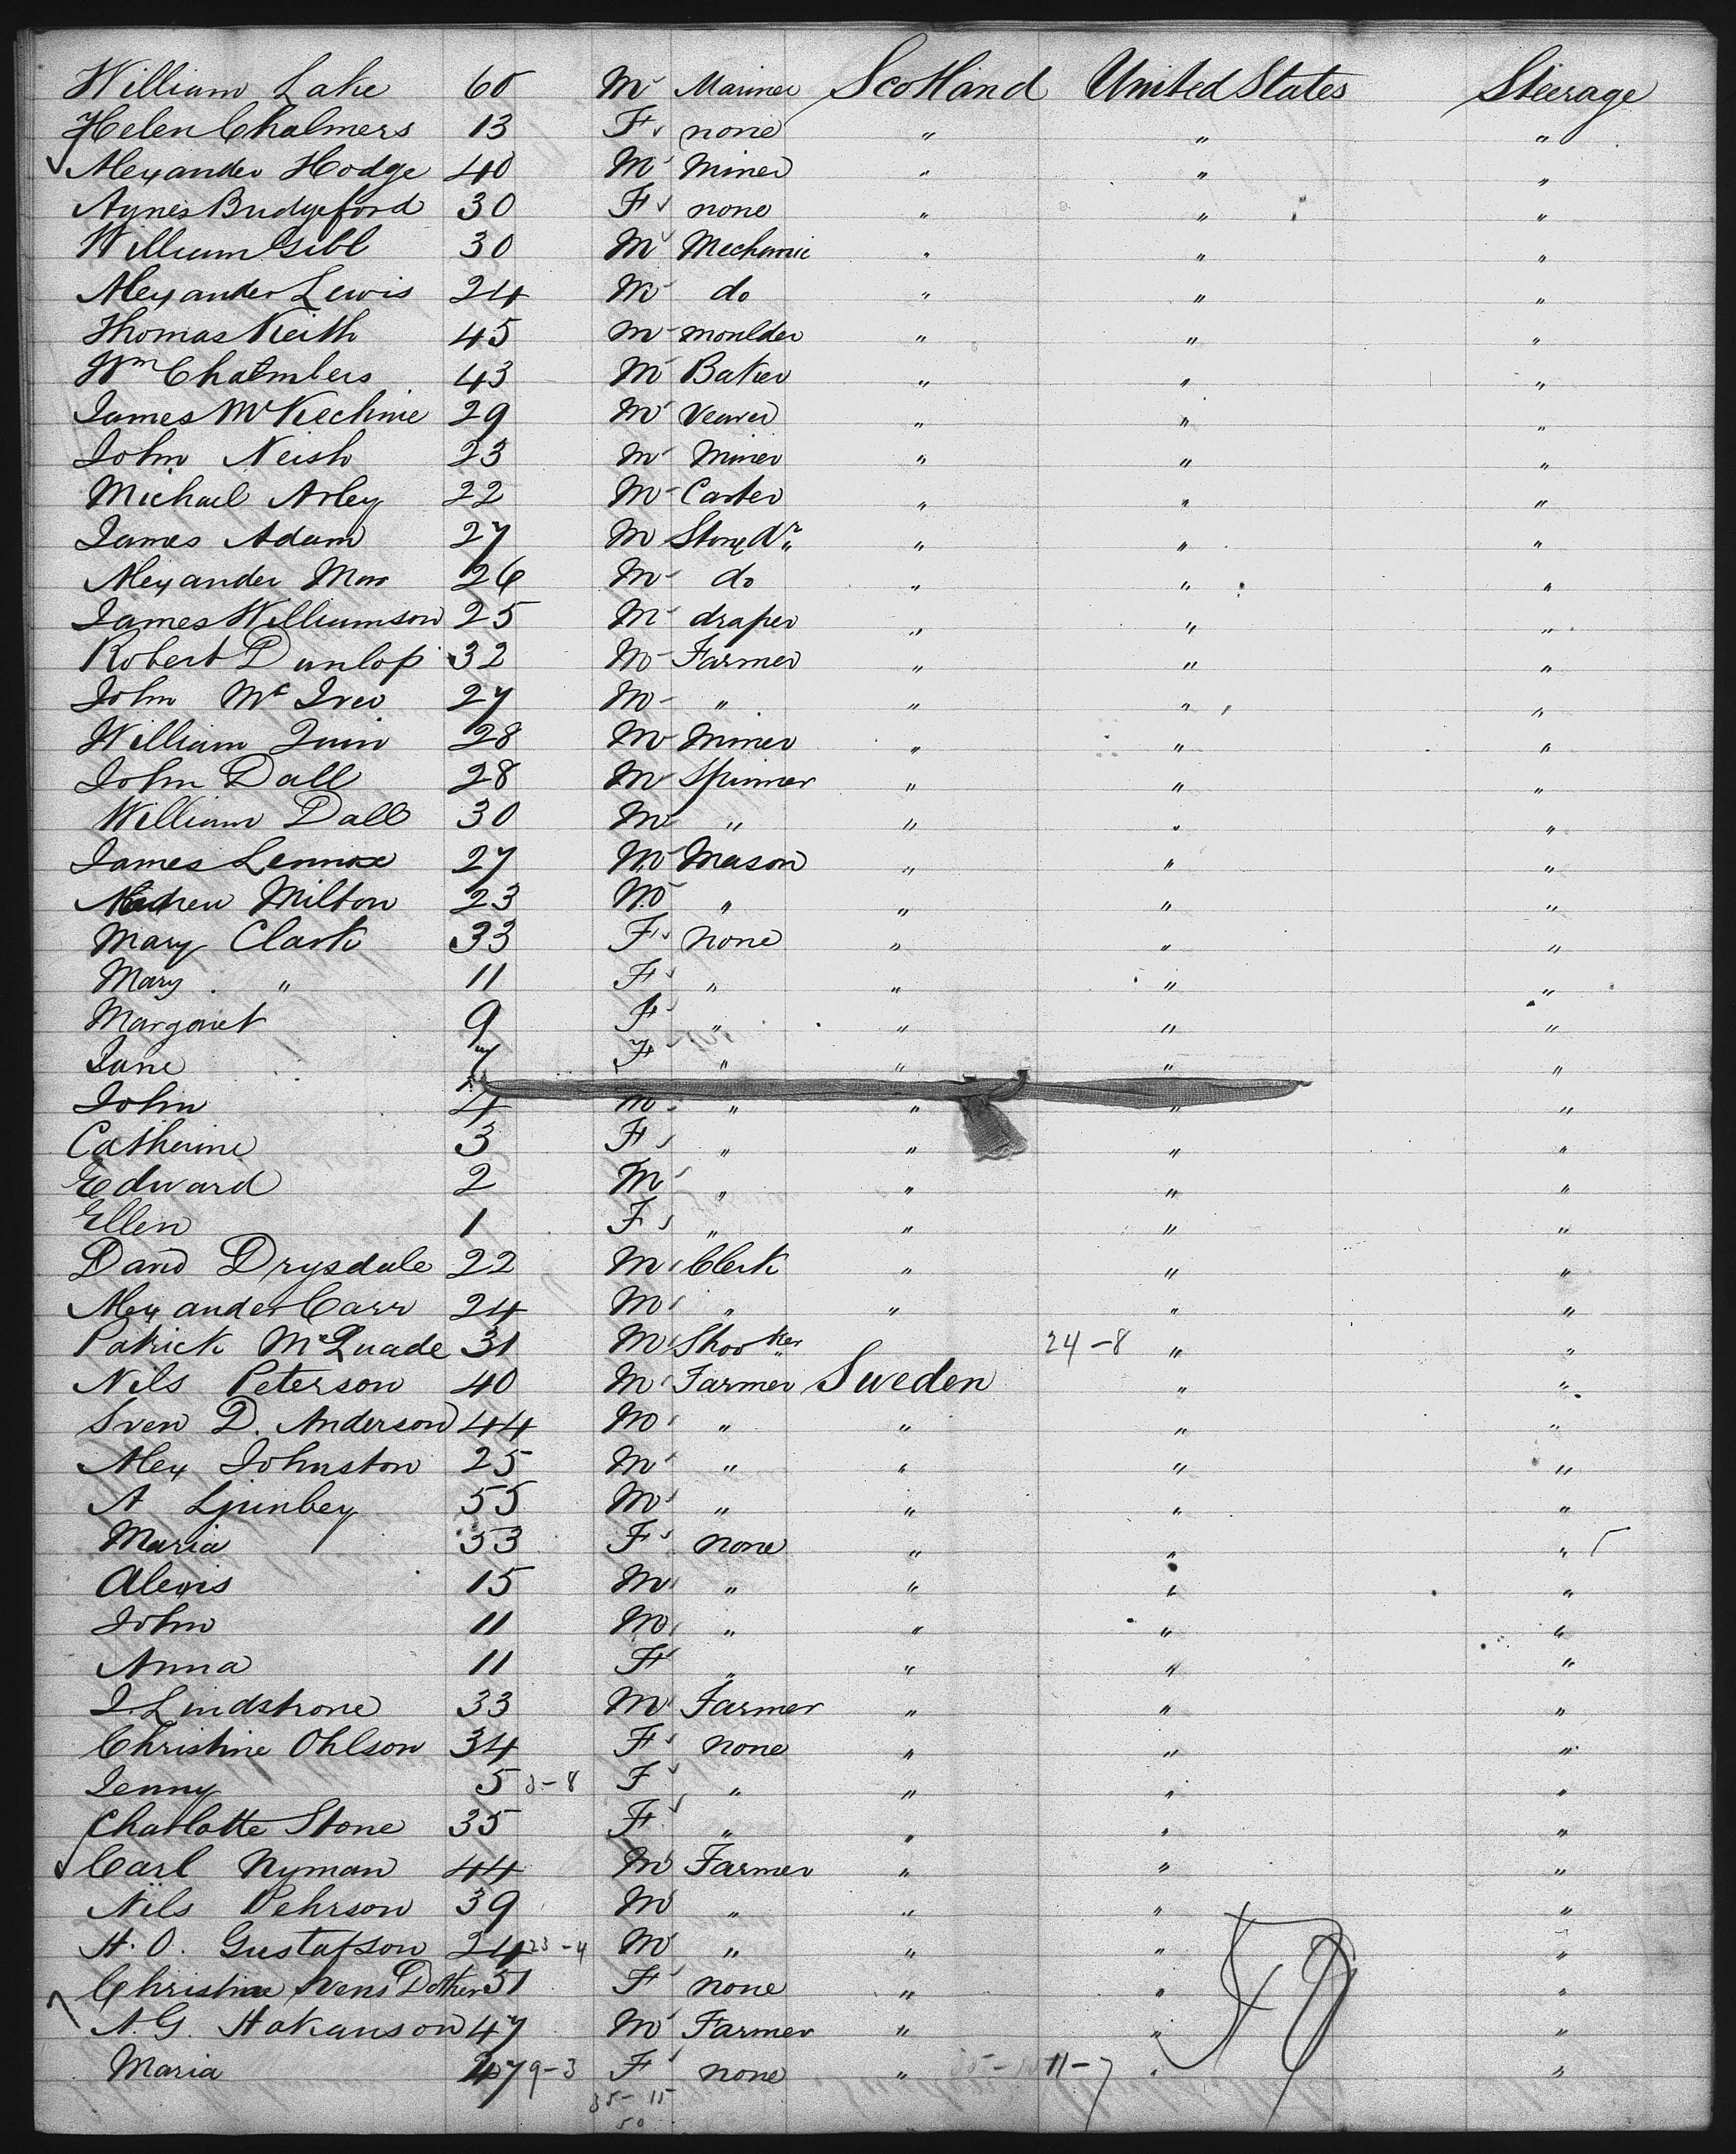 William Lake 60 M Mariner Scotland United States Steerage
Helen Chalmers 13 F none " " "
Alexander Hodge 40 M Miner " " "
Agnes Bridgeford 30 F none " " "
William Gibb 30 M Mechanic " " "
Alexander Lewis 24 M do " " "
Thomas Keith 45 M moulder " " "
Wm Chalmbers 43 M Baker " " "
James McKechnie 29 M " " "
John Neish 23 M Miner " " "
Michael Arley 22 M Carter " " "
James Adam 27 M " " "
Alexander 26 M do " " "
James Williamson 25 M draper " " "
Robert Dunlop 32 M Farmer " " "
John Mc Iver 27 M " " " "
William Quin 28 M Miner " " "
John Dall 28 M Spinner " " "
William Dall 30 M " " " "
James Lennox 27 M Mason " " "
Andrew Milton 23 M " " " "
Mary Clark 33 F none " " "
Mary " 11 F " " " "
Margaret 9 F " " " "
Jane 7 F " " " "
John 4 M " " " "
Catherine 3 F " " " "
Edward 2 M " " " "
Ellen 1 F " " " "
David Drysdale 22 M Clerk " " "
Alexander Carr 24 M " " " "
Patrick McQuade 31 M 24-8 " "
Nils Peterson 40 M Farmer Sweden " "
Sven D. Anderson 44 M " " " "
Alex Johnston 25 M " " " "
A 55 M " " " "
Maria 53 F none " " "
Alexis 15 M " " " "
John 11 M " " " "
Anna 11 F " " " "
J. Lindstrone 33 M Farmer " " "
Christine Ohlson 34 F none " " "
Jenny 5 3-8 F " " " "
Charlotte Stone 35 F " " " "
Carl Nyman 44 M Farmer " " "
Nils Pehrson 39 M " " " "
A. O. Gustafson 24 23-4 M " " " "
Christine Svens Dotter 51 F none " " "
A. G. Hakanson 47 M Farmer " " "
Maria 47 9-3 F none " 11-7 " "
35-15
50